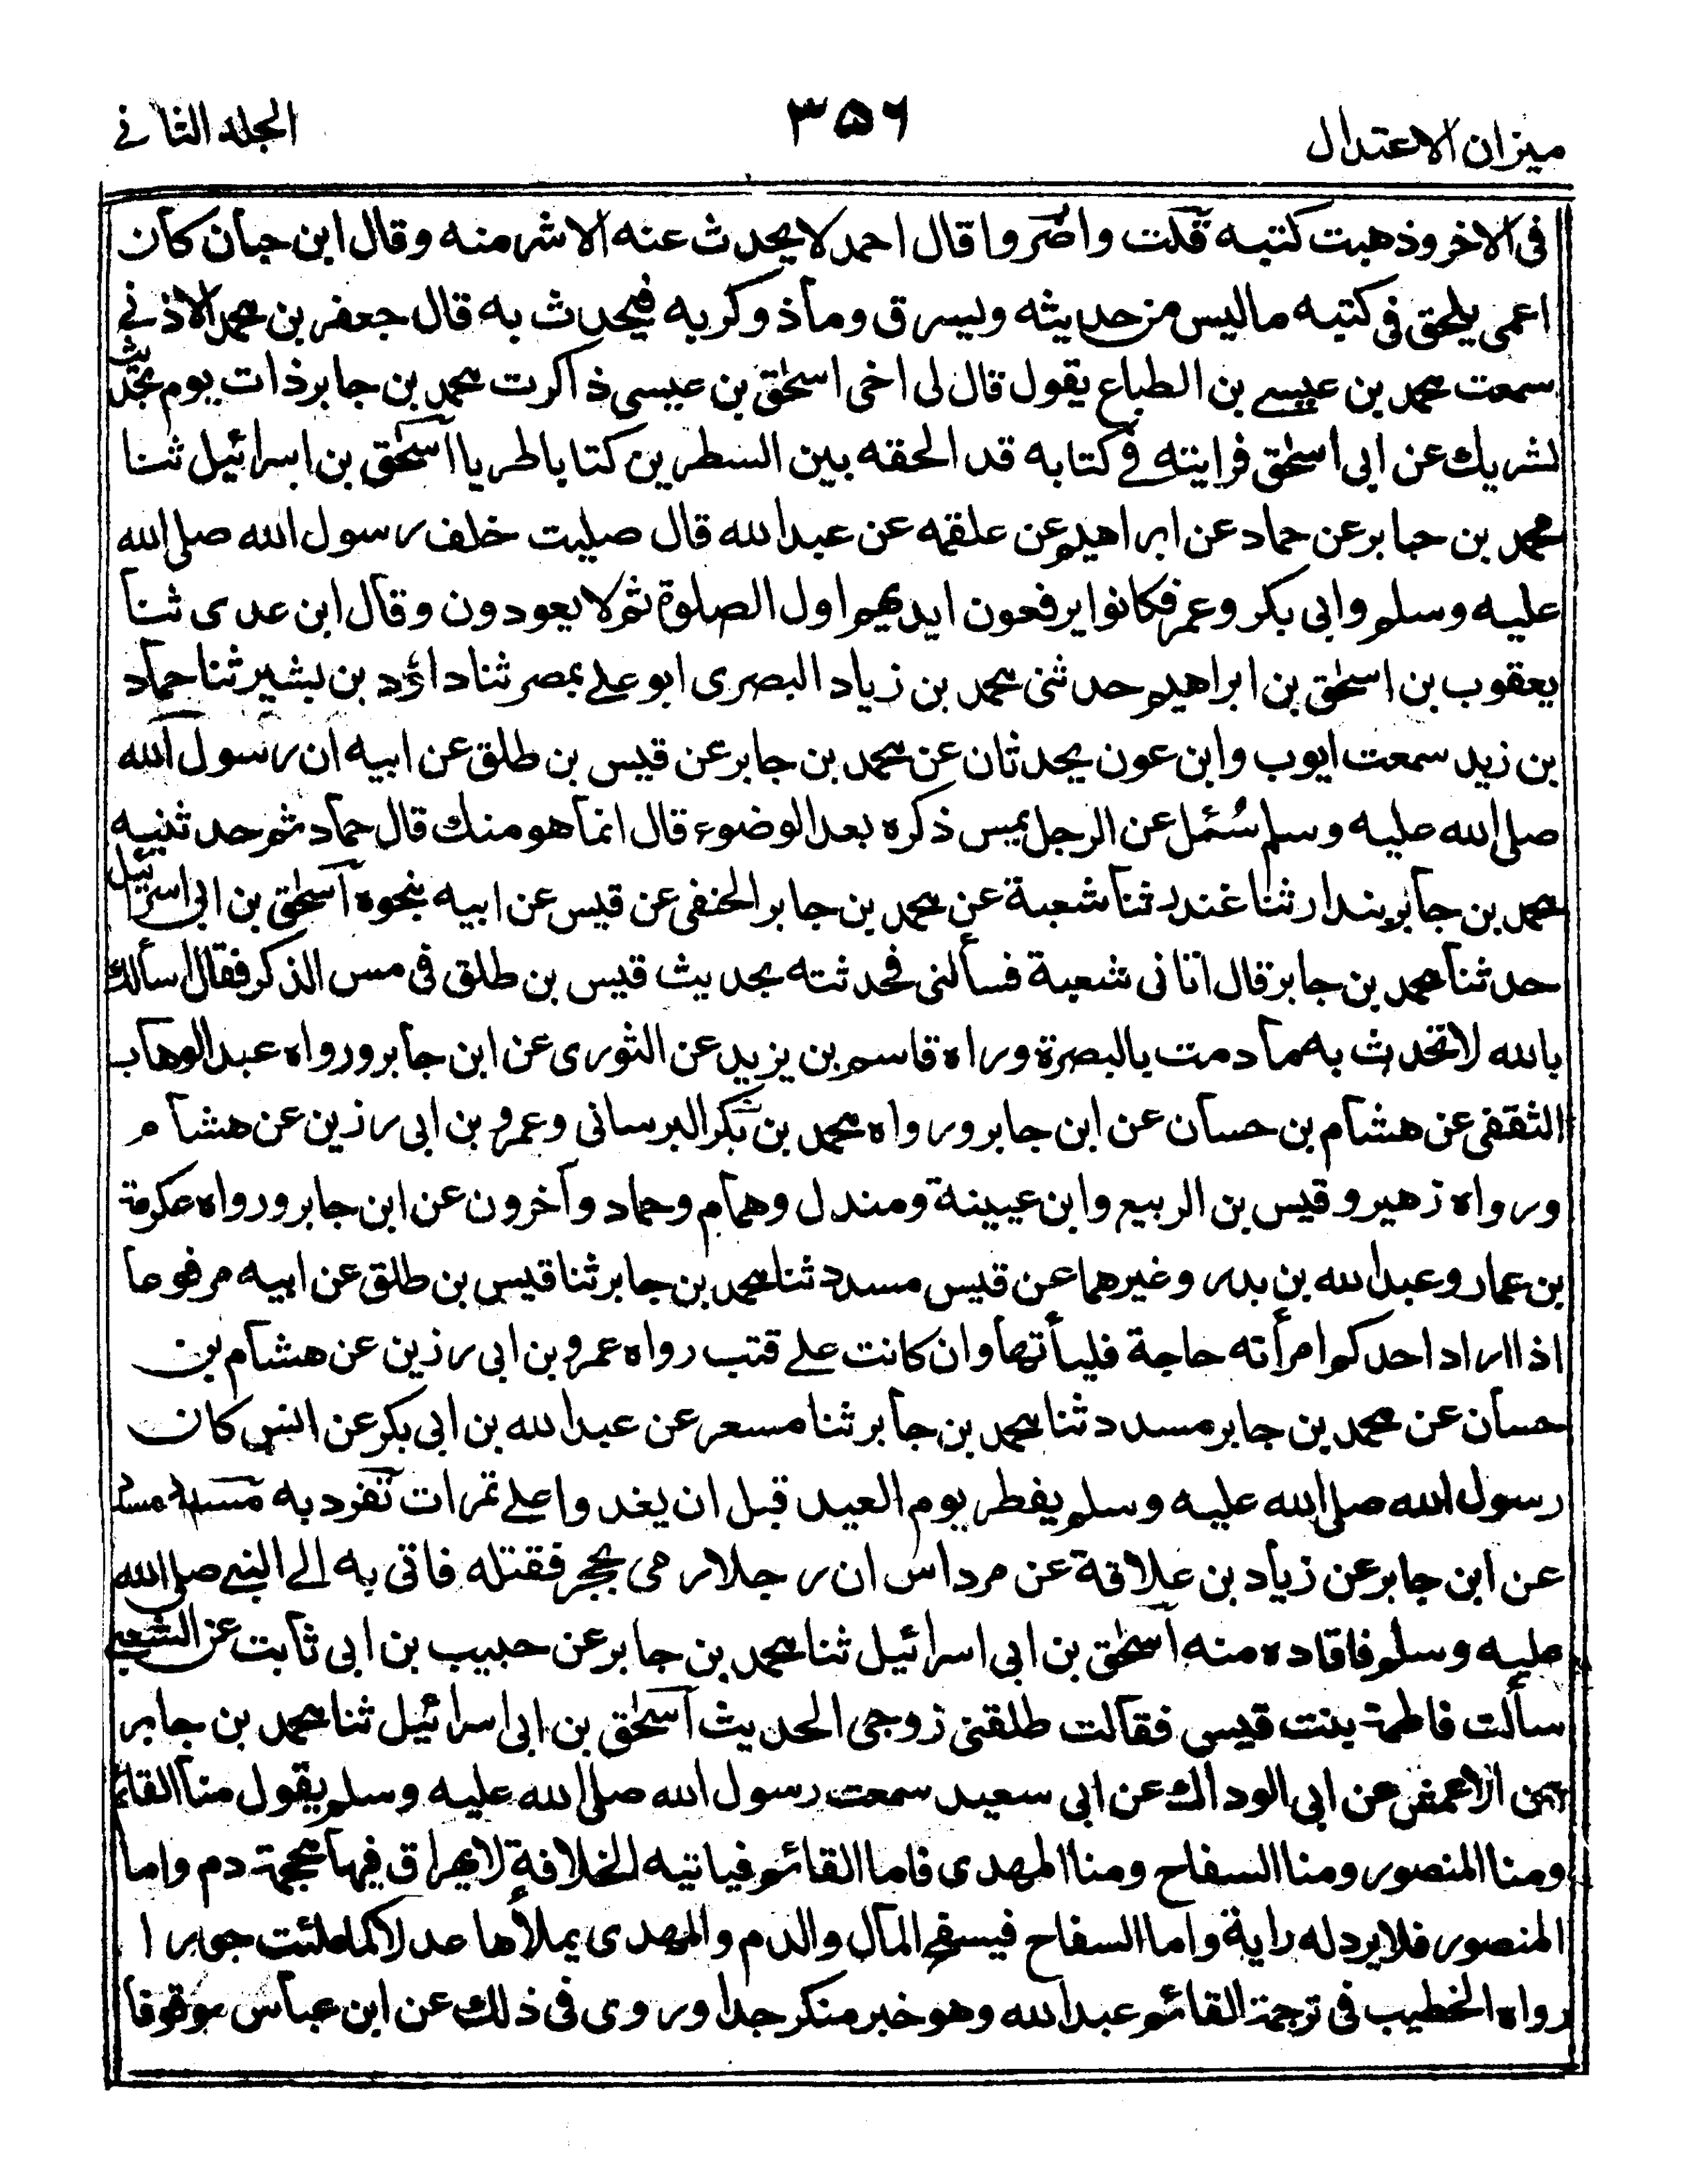 ميزان الاعتدال ٣٥٦ الجلد الثاني
فى الاخر وذهبت كتبه قلت واضروا قال احمد لا يحدث عنه الا شر منه وقال ابن حبان كان
اعمى يلحق فى كتبه ما ليس من حديثه ويسرق وما ذوكر به فيحدث به قال جعفر بن محمد الاذنى
سمعت محمد بن عيسى بن الطباع يقول قال لى اخى اسحٰق بن عيسى ذاكرت محمد بن جابر ذات يوم بحديث
لشريك عن ابى اسحٰق فرايته فى كتابه قد الحقه بين السطرين كتابا طريا اسحٰق بن اسرائيل ثنا
محمد بن جابر عن حماد عن ابراهيم عن علقمه عن عبد الله قال صليت خلف رسول الله صلى الله
عليه وسلم وابى بكر وعمر فكانوا يرفعون ايديهم اول الصلوة ثم لا يعودون وقال ابن عدى ثنا
يعقوب بن اسحٰق بن ابراهيم حدثنى محمد بن زياد البصرى ابو على بمصر ثنا داؤد بن بشير ثنا حماد
بن زيد سمعت ايوب وابن عون يحدثان عن محمد بن جابر عن قيس بن طلق عن ابيه ان رسول الله
صلى الله عليه وسلم سُئمل عن الرجل يمس ذكره بعد الوضوء قال انما هو منك قال حماد ثم حدثنيه
محمد بن جابر بندار ثنا غندر ثنا شعبة عن محمد بن جابر الحنفى عن قيس عن ابيه بنحوه اسحٰق بن ابى اسرائيل
حدثنا محمد بن جابر قال اتانى شعبة فسألنى فحدثته بحديث قيس بن طلق فى مس الذكر فقال أسألك
بالله لا تحدث به ما دمت بالبصرة وراه قاسم بن يزيد عن الثورى عن ابن جابر ورواه عبد الوهاب
الثقفى عن هشام بن حسان عن ابن جابر ورواه محمد بن بكر البرسانى وعمرو بن ابى رزين عن هشام
ورواه زهير وقيس بن الربيع وابن عيينة ومندل وهمام وحماد وآخرون عن ابن جابر ورواه عكرمة
بن عمار وعبد الله بن بدر وغيرهما عن قيس مسدد ثنا محمد بن جابر ثنا قيس بن طلق عن ابيه مرفوعا
اذا اراد احدكم امرأته حاجة فليأتها وان كانت على قتب رواه عمرو بن ابى رزين عن هشام بن
حسان عن محمد بن جابر مسدد ثنا محمد بن جابر ثنا مسعر عن عبد الله بن ابى بكر عن انس كان
رسول الله صلى الله عليه وسلم يفطر يوم العيد قبل ان يغدوا على تمرات تفرد به مسدد
عن ابن جابر عن زياد بن علاقة عن مرداس ان رجلا رمى بحجر فقتله فاتى به الى النبى صلى الله
عليه وسلم فاقاده منه اسحٰق بن ابى اسرائيل ثنا محمد بن جابر عن حبيب بن ابى ثابت عن الشعبى
سألت فاطمة بنت قيس فقالت طلقنى زوجى الحديث اسحٰق بن ابى اسرائيل ثنا محمد بن جابر
عن الاعمش عن ابى الوداك عن ابى سعيد سمعت رسول الله صلى الله عليه وسلم يقول منا القائم
ومنا المنصور ومنا السفاح ومنا المهدى فاما القائم فياتيه الخلافة لا يهراق فيها محجمة دم واما
المنصور فلا يرد له راية واما السفاح فيسفح المال والدم والمهدى يملأها عدلا كما ملئت جورا
رواه الخطيب فى ترجمة القائم عبد الله وهو خبر منكر جدا وروى فى ذلك عن ابن عباس موقوفا